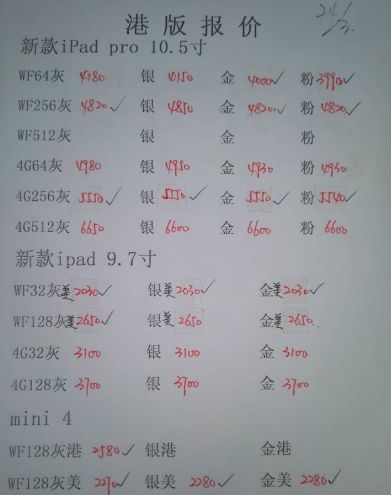 港版报价
24/3.
新款iPad pro 10.5寸
WF64灰 4180 银 4150 金 4000✓ 粉 3990✓
WF256灰 4820✓ 银 4850 金 4820✓ 粉 4820✓
WF512灰 银 金 粉
4G64灰 4980 银 4950 金 4930 粉 4930
4G256灰 5550✓ 银 5550✓ 金 5550✓ 粉 5540✓
4G512灰 6650 银 6600 金 6600 粉 6600
新款ipad 9.7寸
WF32灰美2030✓ 银美2030✓ 金美2030✓
WF128灰美2650✓ 银美2650 金美2650
4G32灰 3100 银 3100 金 3100
4G128灰 3700 银 3700 金 3700
mini 4
WF128灰港 2580✓ 银港 金港
WF128灰美 2270✓ 银美 2280✓ 金美 2280✓